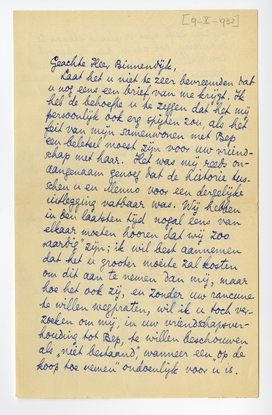 [9-X-1932]
Geachte Heer Binnendijk,
Laat het u niet te zeer bevreemden dat
u nog eens een brief van me krijgt. Ik
heb de behoefte u te zeggen dat het mij
persoonlijk ook erg spijten zou, als het
feit van mijn samenwonen met Bep
een beletsel moest zijn voor uw vriend-
schap met haar. Het was mij reeds on-
aangenaam genoeg dat de historie tus-
schen u en Menno voor een dergelijke
uitlegging vatbaar was. Wij hebben
in den laatsten tijd nogal eens van
elkaar moeten hooren dat wij zoo
"aardig" zijn; ik wil best aannemen
dat het u grooter moeite zal kosten
om dit aan te nemen dan mij, maar
hoe het ook zij, en zonder uw rancune
te willen wegpraten, wil ik u toch ver-
zoeken om mij, in uw vriendschapsver-
houding tot Bep, te willen beschouwen
als "niet bestaand", wanneer een "op de
koop toe nemen" ondoenlijk voor u is.